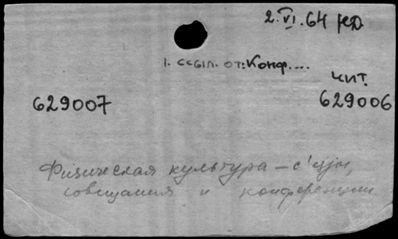 2.VI.64
1. ссыл. от: Конф....
чит.
629007
629006
Физическая культура – с'езды,
совещания и конференции